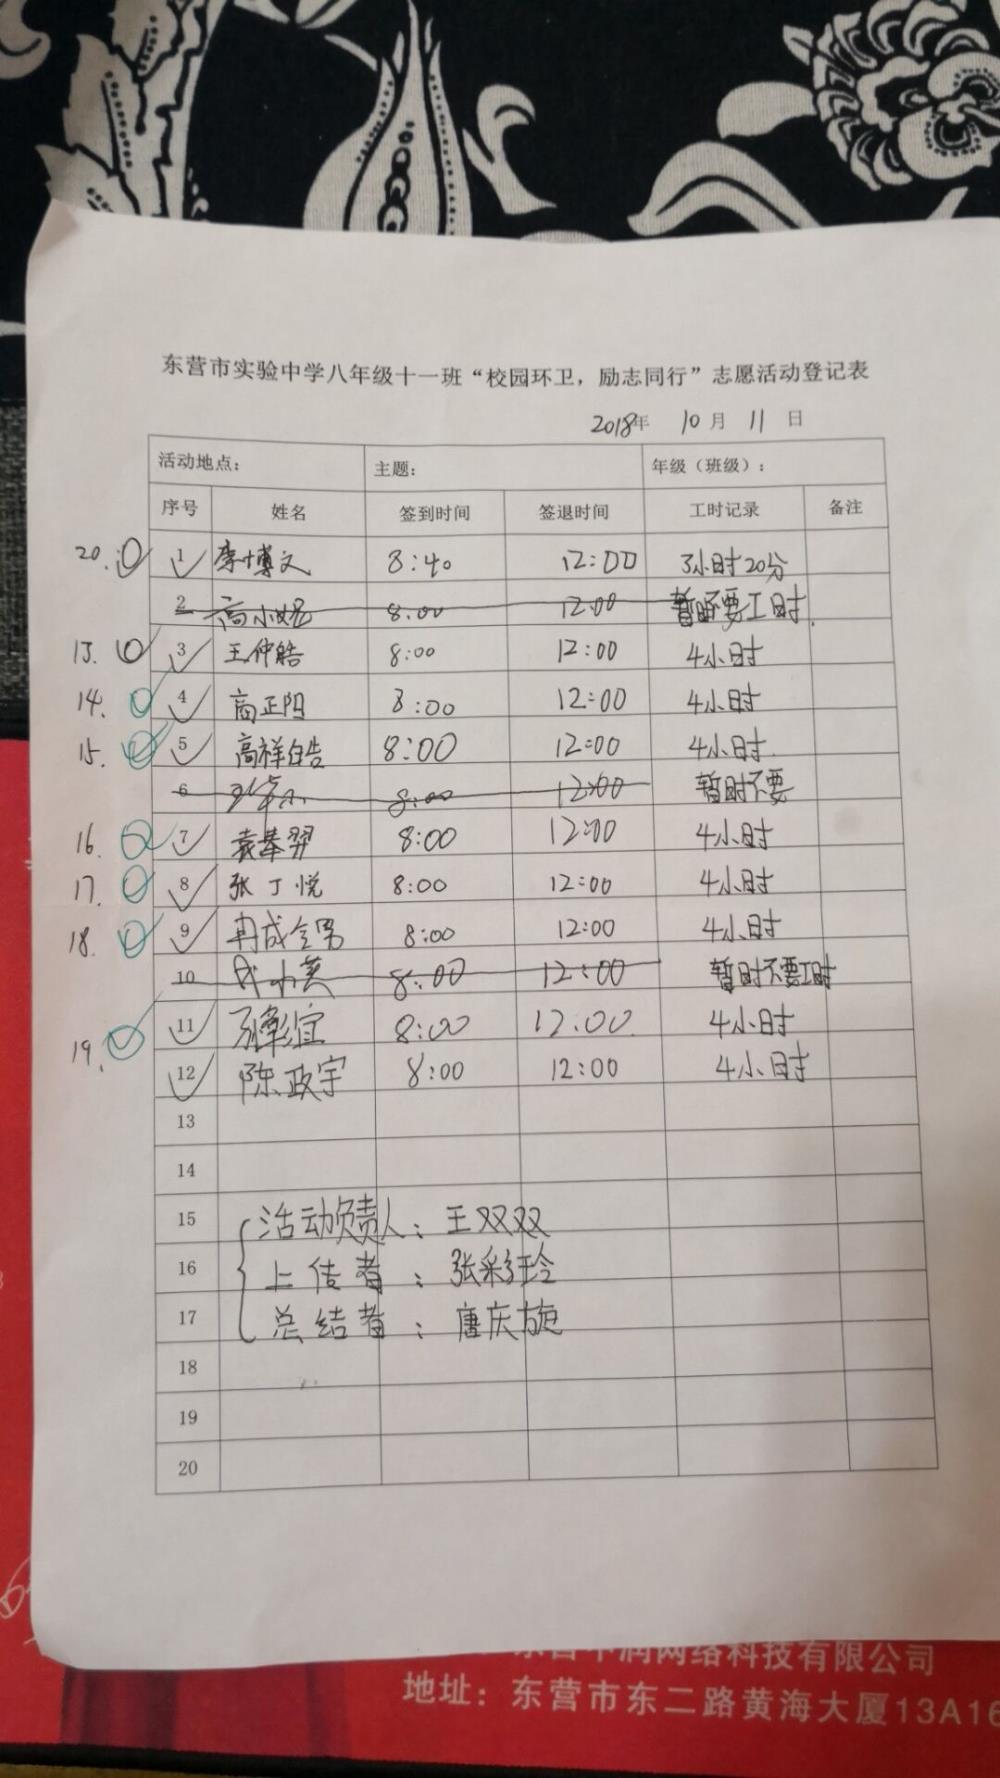 东营市实验中学八年级十一班“校园环卫，励志同行”志愿活动登记表
2018年 10月 11日
活动地点： 主题： 年级（班级）：
序号 姓名 签到时间 签退时间 工时记录 备注
20. 1 李博文 8:40 12:00 3小时20分
2 高小妮 8:00 12:00 暂时不要工时
13. 3 王仲皓 8:00 12:00 4小时
14. 4 商正阳 8:00 12:00 4小时
15. 5 高祥皓 8:00 12:00 4小时
6 8:00 12:00 暂时不要
16. 7 袁 羿 8:00 12:00 4小时
17. 8 张丁悦 8:00 12:00 4小时
18. 9 冉成 8:00 12:00 4小时
10 8:00 12:00 暂时不要工时
19. 11 彰宜 8:00 12:00 4小时
12 陈政宇 8:00 12:00 4小时
13
14
15 活动负责人：王双双
16 上传者：张彩玲
17 总结者：唐庆旋
18
19
20
网络科技有限公司
地址：东营市东二路黄海大厦13A16